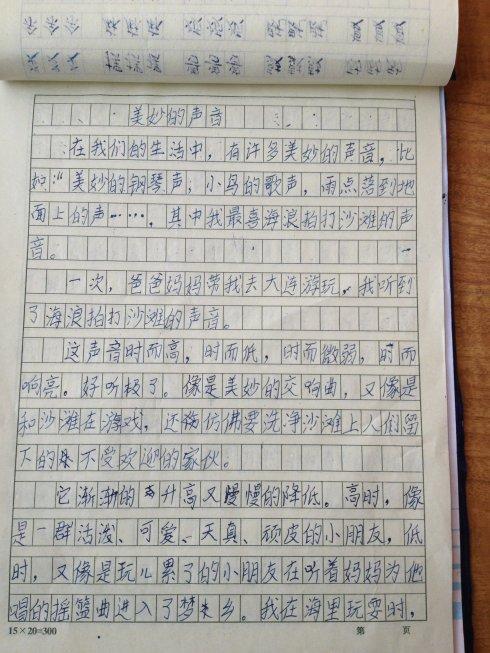 美妙的声音
在我们的生活中，有许多美妙的声音，比
如："美妙的钢琴声，小鸟的歌声，雨点落到地
面上的声……，其中我最喜海浪拍打沙滩的声
音。
一次，爸爸妈妈带我去大连游玩，我听到
了海浪拍打沙滩的声音。
这声音时而高，时而低，时而微弱，时而
响亮。好听极了。像是美妙的交响曲，又像是
和沙滩在游戏，还仿佛要洗净沙滩上人们留
下的不受欢迎的家伙。
它渐渐的升高又慢慢的降低。高时，像
是一群活泼、可爱、天真、顽皮的小朋友，低
时，又像是玩儿累了的小朋友在听着妈妈为他
唱的摇篮曲进入了梦乡。我在海里玩耍时，
15×20=300 第 页